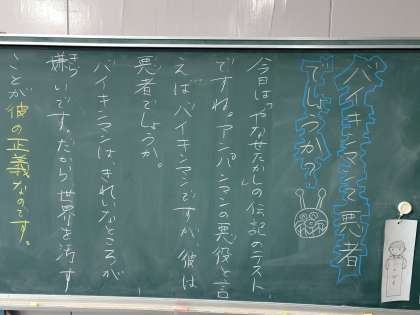 バイキンマンて悪者
でしょうか？
今日は「やなせたかし」の伝記のテスト
ですね。アンパンマンの悪役と言
えばバイキンマンですが、彼は
悪者でしょうか。
バイキンマンは、きれいなところが
嫌いです。だから世界を汚す
きら
ことが彼の正義なのです。